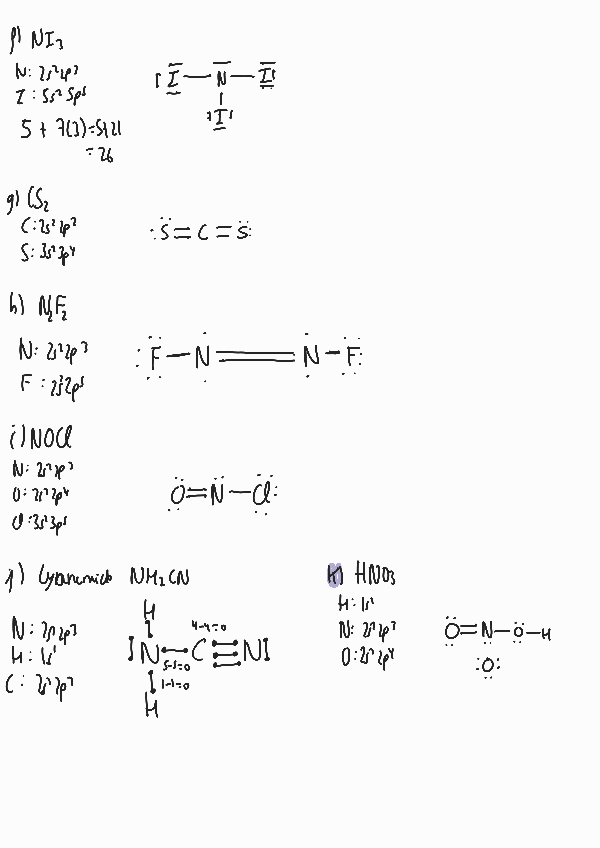 f) NI₃
N: 2s²2p³
I: 5s²5p⁵
5 + 7(3) = 5+21
= 26
I — N — I
I
g) CS₂
C: 2s²2p²
S: 3s²3p⁴
S = C = S
h) N₂F₂
N: 2s²2p³
F: 2s²2p⁵
F — N = N — F
i) NOCl
N: 2s²2p³
O: 2s²2p⁴
Cl: 3s²3p⁵
O = N — Cl
j) Cyanamide NH₂CN
N: 2s²2p³
H: 1s¹
C: 2s²2p²
H
4-4=0
N — C ≡ N
5-5=0
1-1=0
H
k) HNO₃
H: 1s¹
N: 2s²2p³
O: 2s²2p⁴
O = N — O — H
O